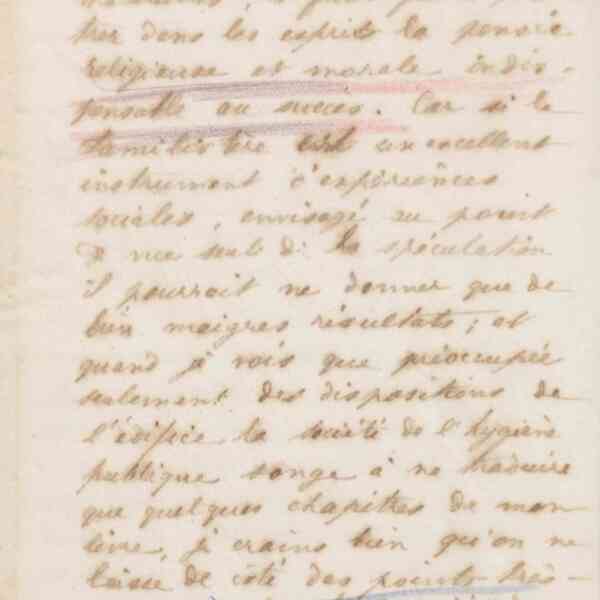 trer dans les esprits la pensée
religieuse et morale indis-
pensable au succès. Car si le
familistère est un excellent
instrument d'expériences
sociales, envisagé au point
de vue seul de la spéculation
il pourrait ne donner que de
bien maigres résultats; et
quand je vois que préoccupée
seulement des dispositions de
l'édifice la société de l'hygiène
publique songe à ne traduire
que quelques chapitres de mon
livre, je crains bien qu'on ne
laisse de côté des points très-